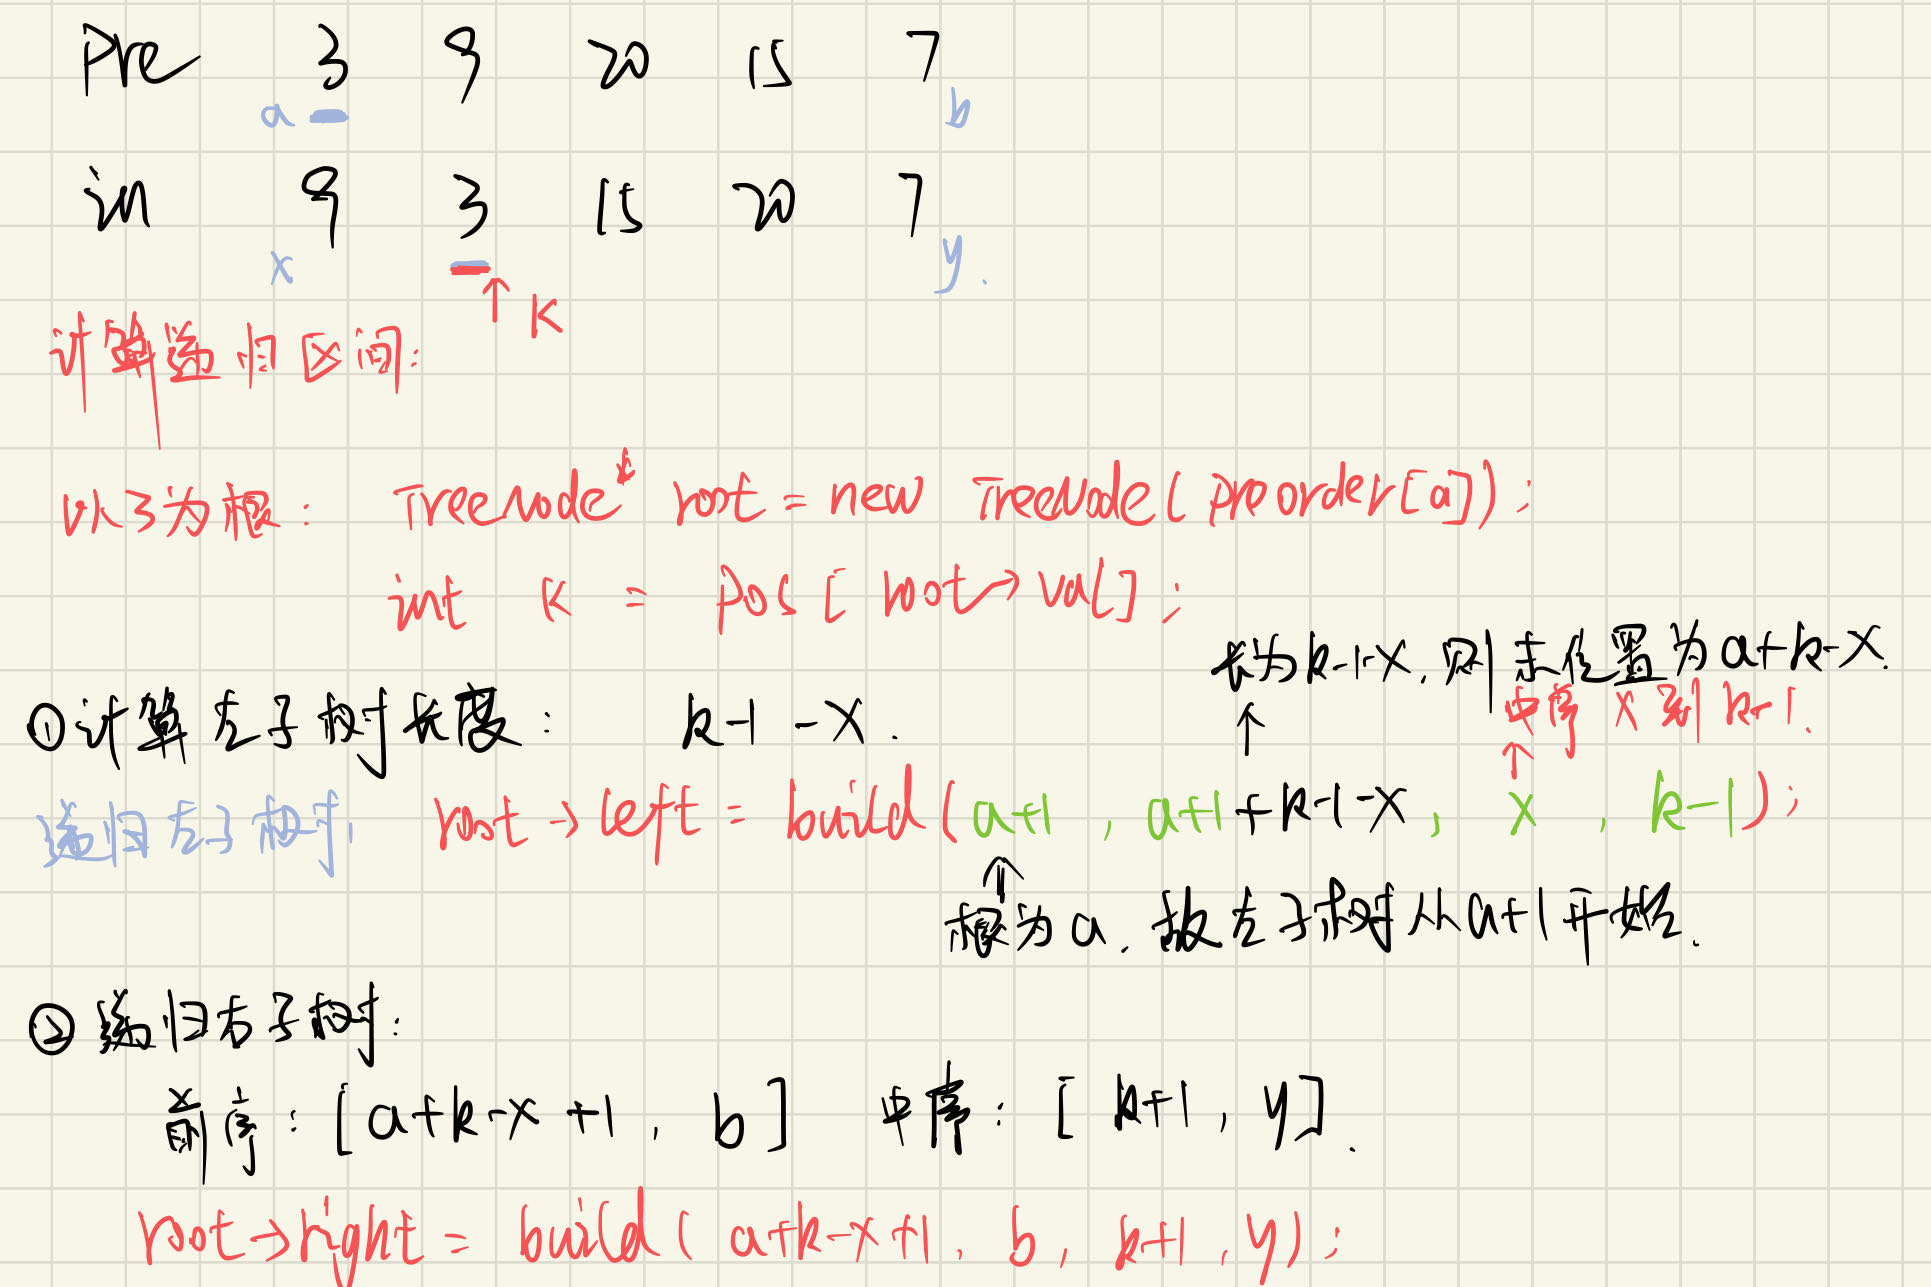 Pre 3 9 20 15 7
a b
in 9 3 15 20 7
x y.
↑ K
计算递归区间:
以3为根: TreeNode* root = new TreeNode(preorder[a]);
int K = pos[root->val];
长为k-1-x,则末位置为a+k-x.
①计算左子树长度: k-1-x.
中序x到k-1.
递归左子树: root->left = build(a+1, a+1+k-1-x, x, k-1);
根为a,故左子树从a+1开始.
②递归右子树:
前序: [a+k-x+1, b] 中序: [k+1, y].
root->right = build(a+k-x+1, b, k+1, y);